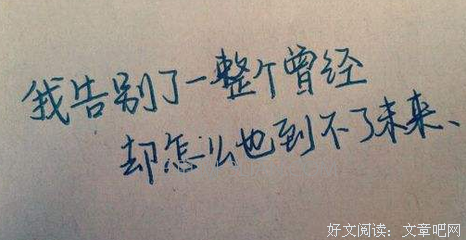 我告别了一整个曾经
却怎么也到不了未来、
好文阅读：文章吧网